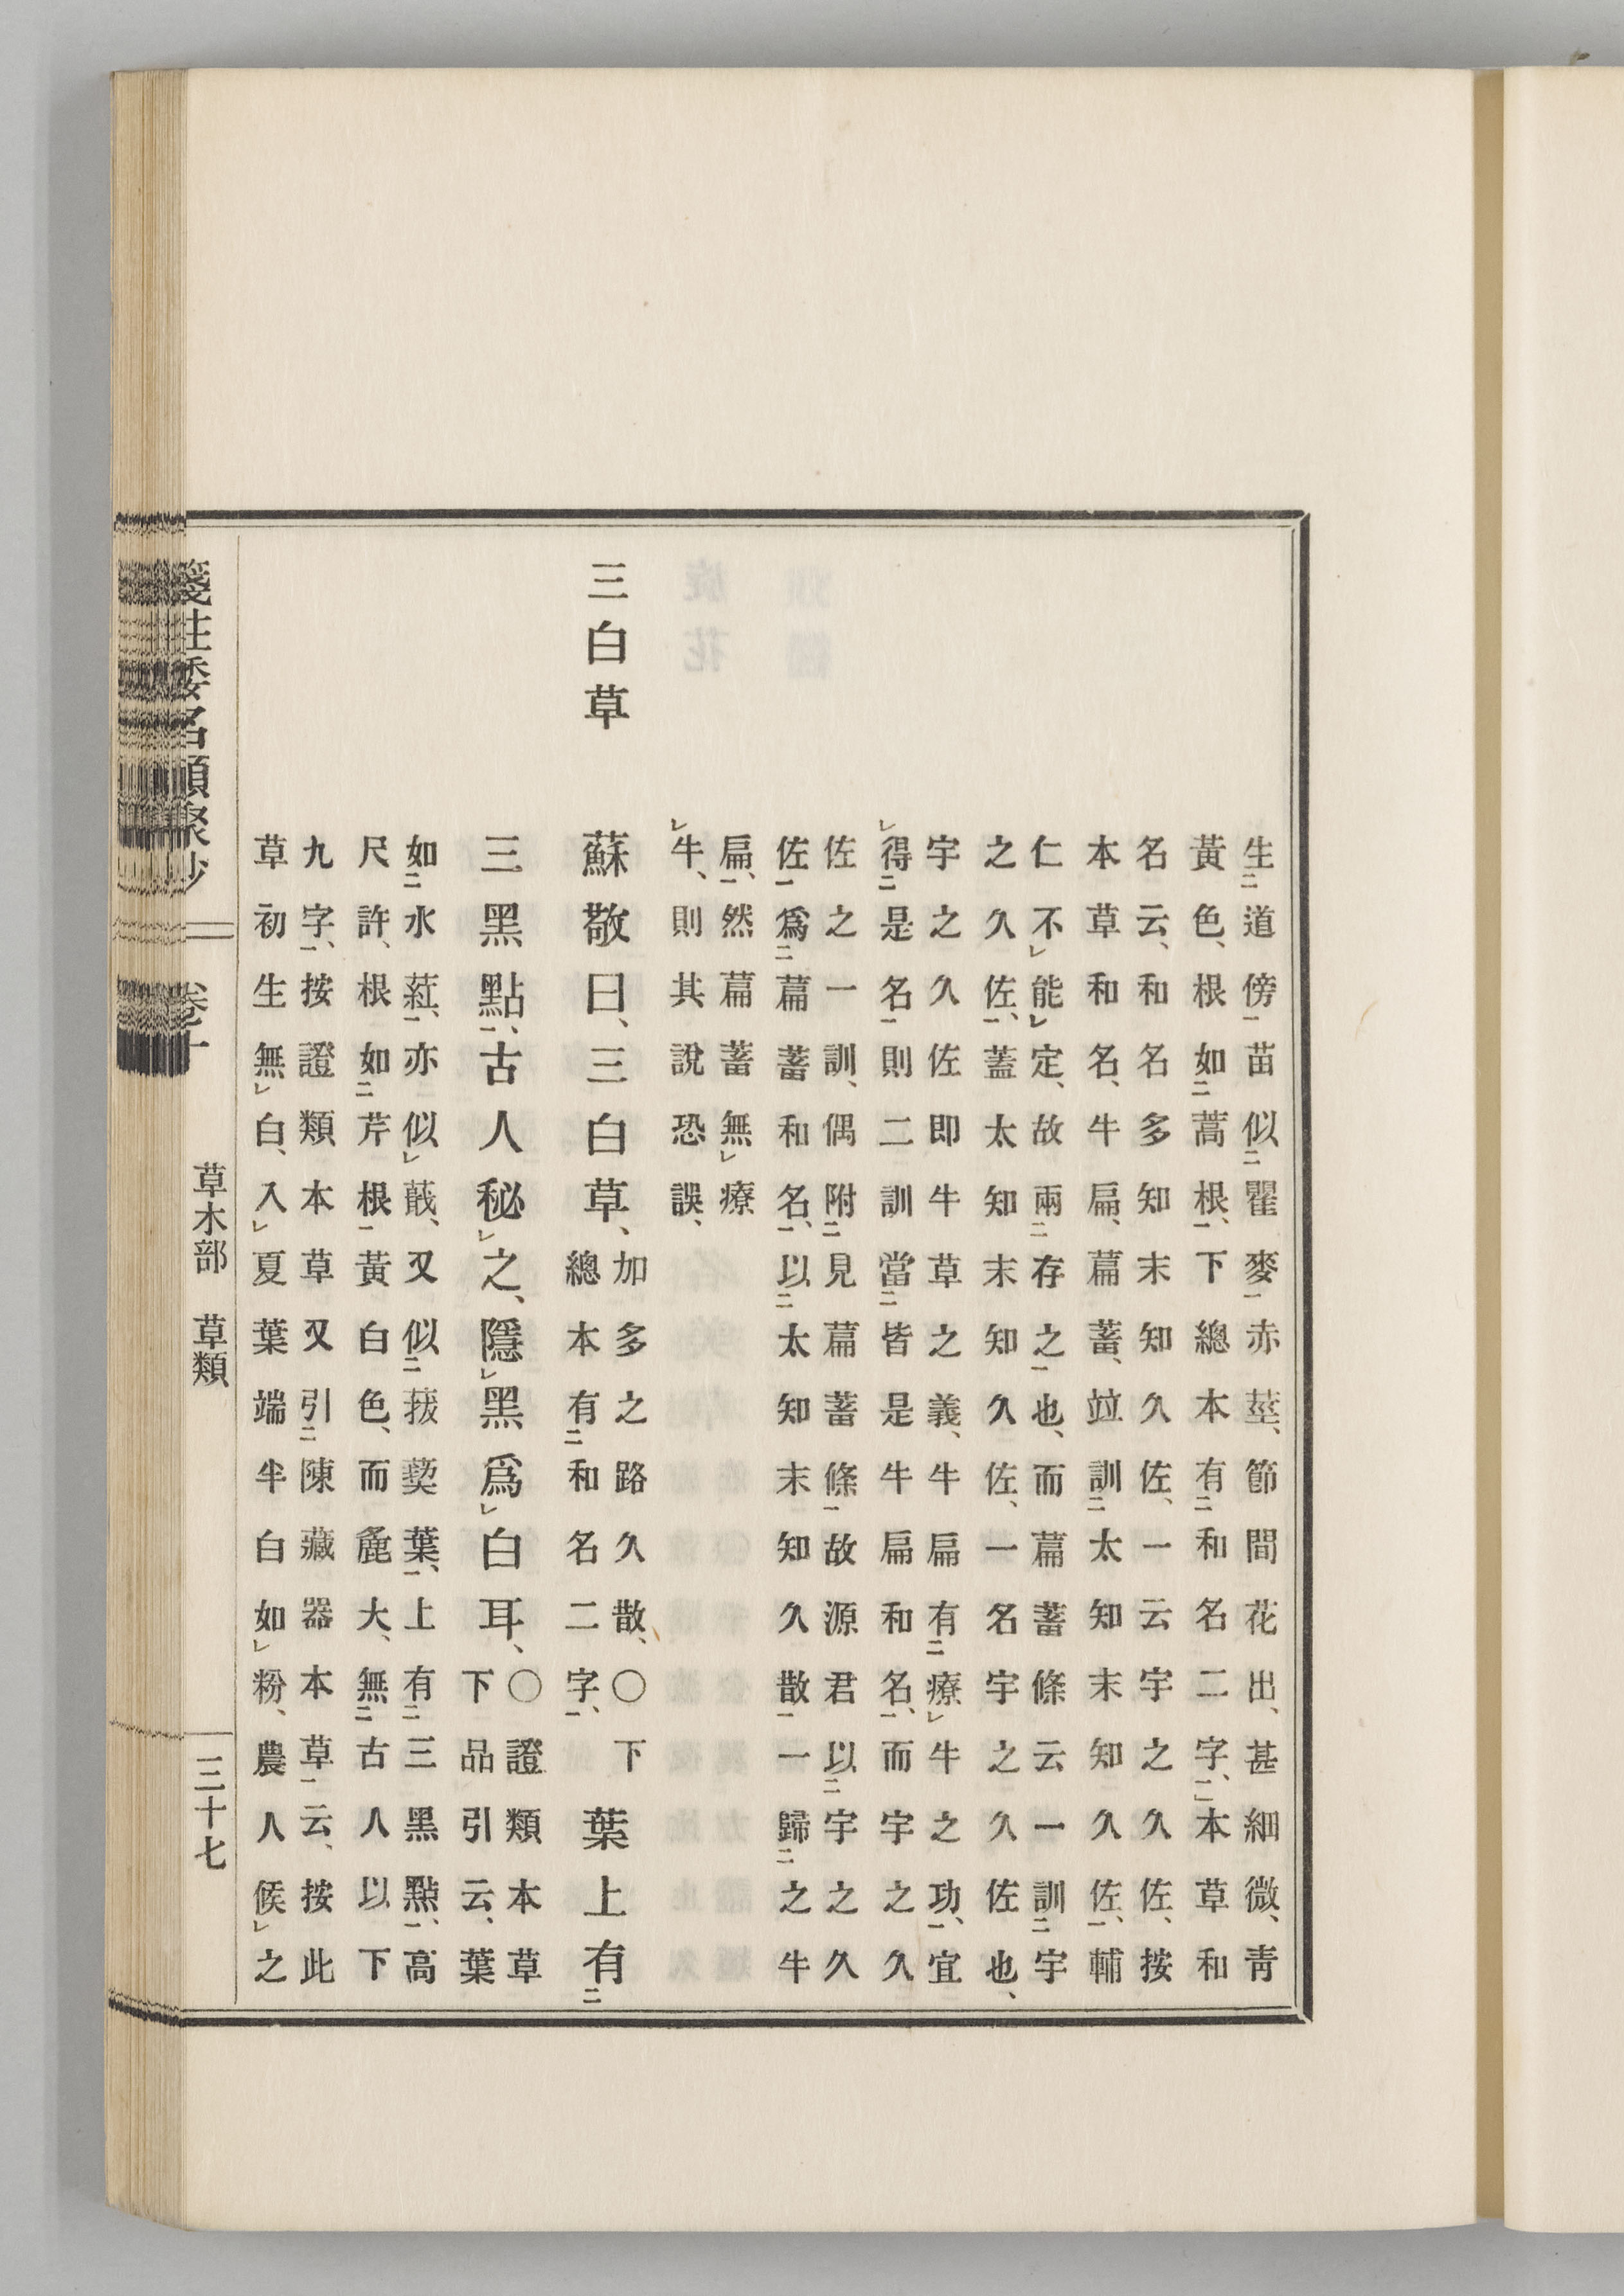 生二道傍一苗似二瞿麥一赤莖、節間花出、甚細微、靑
黃色、根如二蒿根一、下總本有二和名二字一、本草和
名云、和名多知末知久佐、一云宇之久佐、按
本草和名、牛扁、萹蓄、竝訓二太知末知久佐一、輔
仁不レ能レ定、故兩二存之一也、而萹蓄條云一訓二宇
之久佐一、蓋太知末知久佐、一名宇之久佐也、
宇之久佐即牛草之義、牛扁有二療レ牛之功一、宜
レ得二是名一則二訓當二皆是牛扁和名一、而宇之久
佐之一訓、偶附二見萹蓄條一故源君以二宇之久
佐一爲二萹蓄和名一、以二太知末知久散一一歸二之牛
扁一、然萹蓄無レ療
レ牛、則其說恐誤、
三白草
蘇敬曰、三白草、加多之路久散、〇下總本有二和名二字一、葉上有二
三黑點一、古人秘レ之、隱レ黑爲レ白耳、〇證類本草下品引云、葉
如二水葒一、亦似レ蕺、又似二菝葜葉一、上有二三黑點一、高
尺許、根如二芹根一黃白色、而麁大、無二古人以下
九字一、按證類本草又引二陳藏器本草一云、按此
草初生無レ白、入レ夏葉端半白如レ粉、農人候レ之
箋注倭名類聚抄 卷十 草木部 草類 三十七